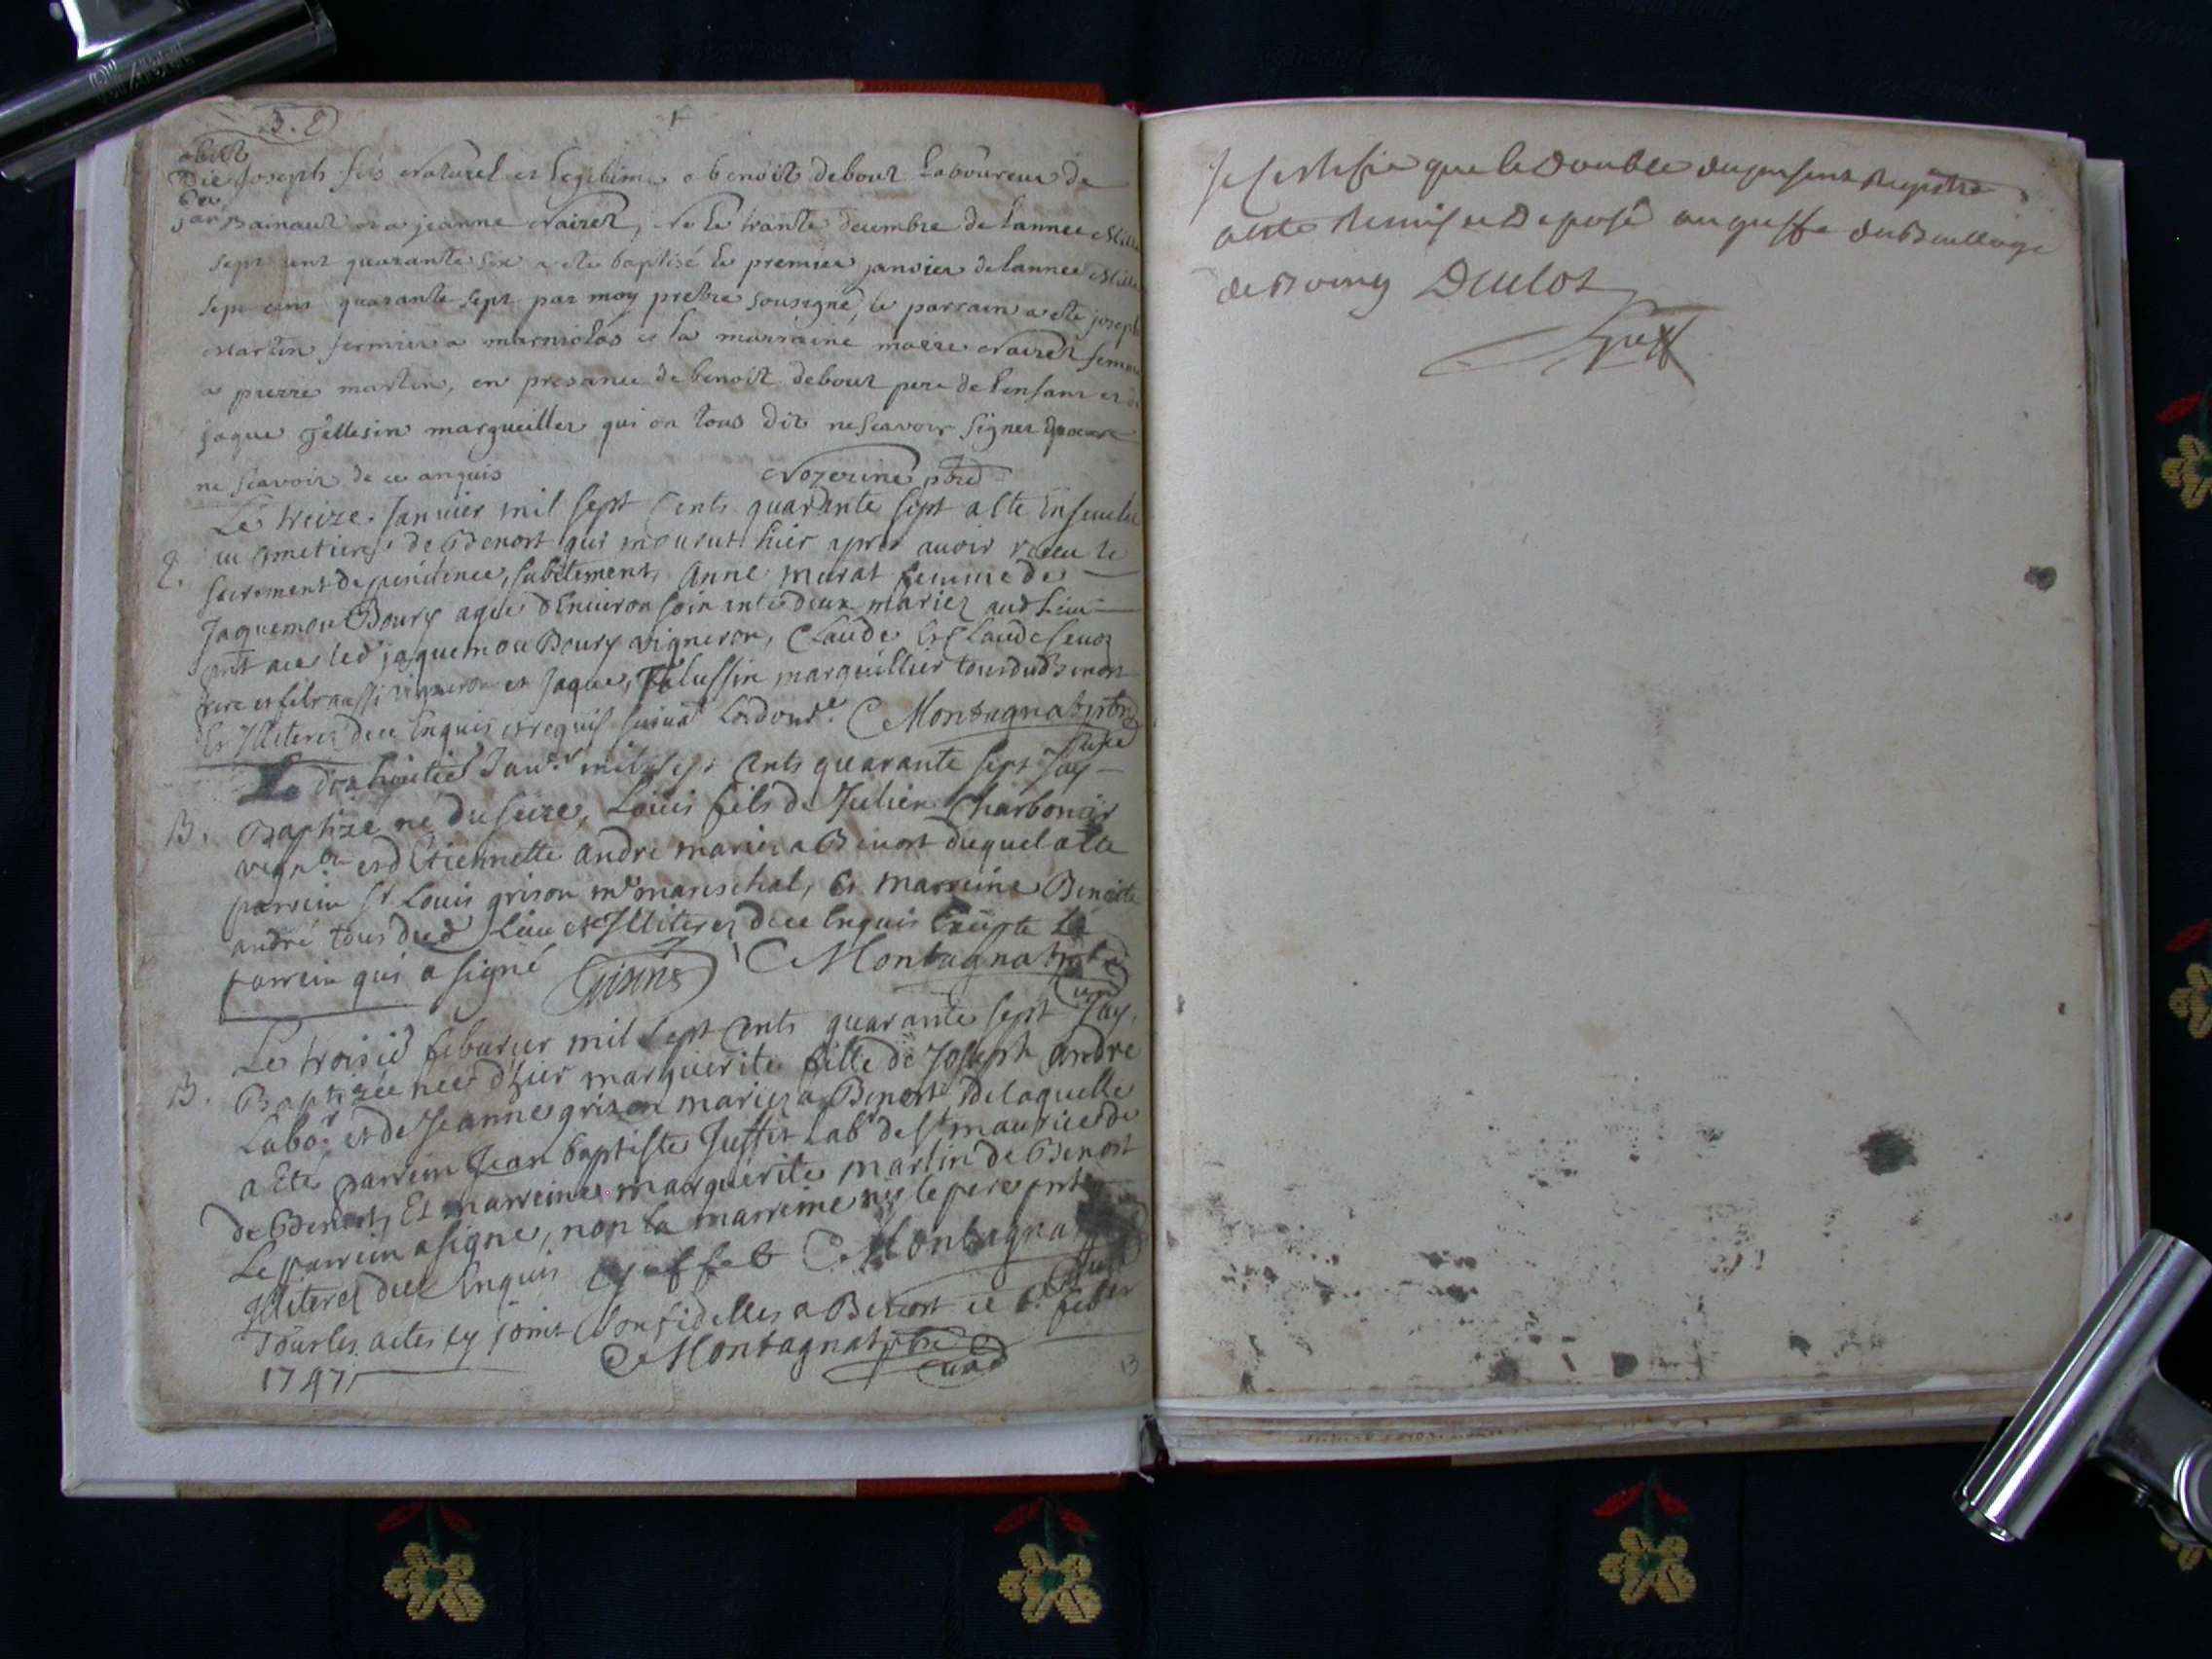 obiit
Die
6a
jar
Joseph fils naturel et legitime a benoit debout laboureur de
Rainaut et a jeanne nairet, ne le trante decembre de lannee Mille
sept cent quarante six a ete baptisé le premier janvier de lannee Mille
sept cent quarante sept par moy prestre sousigné, le parrain a ete joseph
Martin fermier a marniolas et la marraine marie nairet femme
a pierre martin, en presance de benoit debout pere de lenfant et de
jaque gellesin margueiller qui on tous dit ne scavoir signer
ne scavoir de ce anquis Nozerine pbre
Le treize Janvier mil sept cents quarante sept a ete Ensevelie
2. au cimetiere de Benost qui mourut hier apres avoir receu le
sacrement de penitence, subitement, Anne murat femme de
Jaquemou Boury agée d'Environ soixante deux mariez aud lieu
pnt aux led jaquemou Boury vigneron, Claude et Claude
pere et fils aussi vigneron et Jaque, Jalussin marguillier tous dud Benost
Et Illiterez de ce Enquis et requis suivat Lordonce Montagnat pbre
curé
Le dixhuitie Janvr mil sept cents quarante sept Jay
B. Baptizé né du seize, Louis fils de Julien Charbonier
vignon et d'Etiennette andré mariez a Benost duquel a ete
parrein sr Louis grison me mareschal, Et marreine Benoite
andré tous dud Lieu et Illiterez de ce Enquis Excepte le
parrein qui a signé Grisons Montagnat pbre
curé
Le troisie feburier mil sept cents quarante sept Jay
B. Baptizée née d'hier marguerite fille de Joseph andré
Labor et de Jeanne grison mariez a Benost de laquelle
a Eté parrein Jean baptiste Juffet Labr de st maurice de
de Benost, Et marreine marguerite martin de Benost
Le parrein a signé, non la marreine ny le pere pnts
Illiterez de ce Enquis Cyuffet Montagnat
curé
Tous les actes cy joint sont fidelles a Benost ce 6e feber
1747 Montagnat pbre
curé
13
Je Certifie que le Double du present Registre
a eté Remis et Deposé au greffe du Bailliage
de Bourg Duclot
Greff